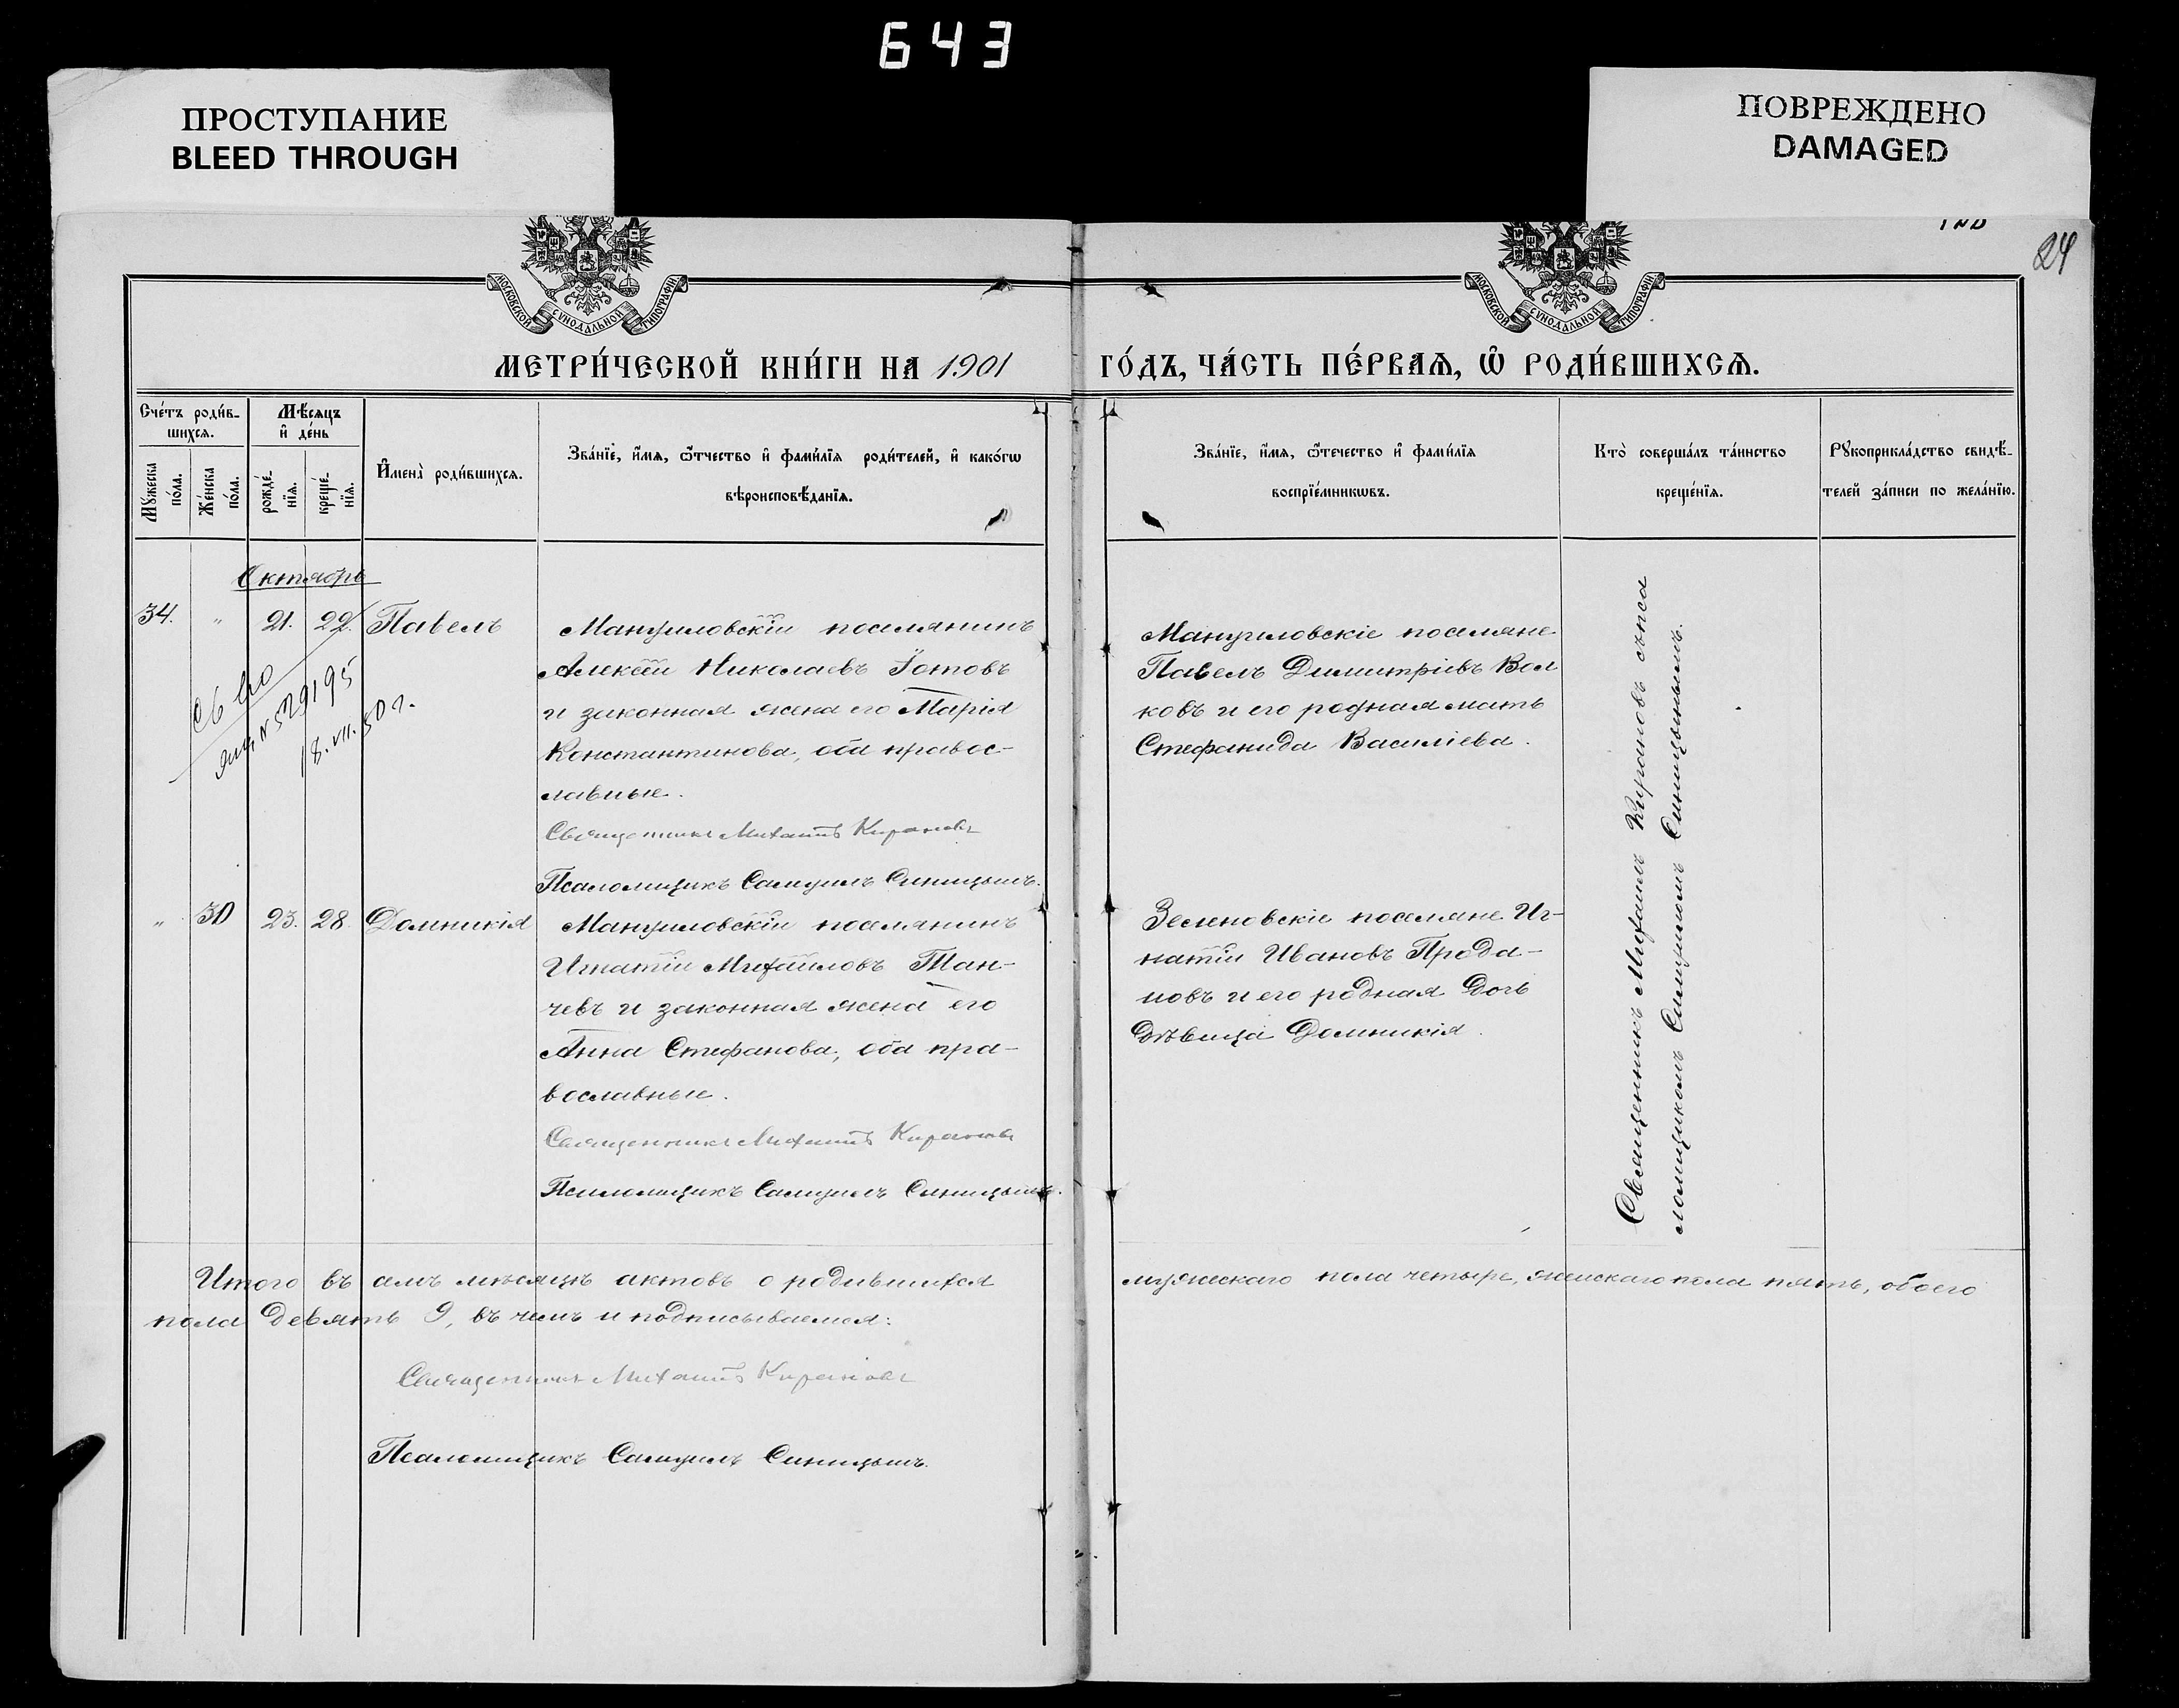 643
ПРОСТУПАНИЕ
BLEED THROUGH
ПОВРЕЖДЕНО
DAMAGED
24
МОСКОВСКОЙ СѴНОДАЛЬНОЙ ТИПОГРАФІИ
МОСКОВСКОЙ СѴНОДАЛЬНОЙ ТИПОГРАФІИ
МЕТРИ́ЧЕСКОЙ КНИ́ГИ НА 1901 ГО́ДЪ, ЧА́СТЬ ПЕ́РВАѦ, Ѡ҆ РОДИ́ВШИХСѦ.
Сче́тъ роди́в-
шихсѧ.
Мꙋ́жеска
по́ла.
Же́нска
по́ла.
Мѣ́сѧцъ
и҆ де́нь
рожде́-
нїѧ.
креще́-
нїѧ.
И҆мена̀ роди́вшихсѧ.
Зва́нїе, и҆́мѧ, ѻ҆́тчество и҆ фами́лїѧ роди́телей, и҆ како́гѡ
вѣроисповѣ́данїѧ.
Зва́нїе, и҆́мѧ, ѻ҆́течество и҆ фами́лїѧ
воспрїе́мникѡвъ.
Кто̀ соверша́лъ та́инство
креще́нїѧ.
Рꙋкоприкла́дство свидѣ́-
телей за́писи по жела́нїю.
Октябрь
34. " 21. 22. Павелъ
Мануиловскій поселянинъ
Алексѣй Николаевъ Іотовъ
и законная жена его Марія
Константинова, оба правос-
лавные.
Священникъ Михаилъ Кирановъ
Псаломщикъ Самуилъ Синицынъ.
Св во
N 529195
18.VII.50 г.
Мануиловскіе поселяне
Павелъ Димитріевъ Вол
ковъ и его родная мать
Стефанида Василіева.
" 30 23. 28. Домникія
Мануиловскій поселянинъ
Игнатій Михайловъ Тан-
чевъ и законная жена его
Анна Стефанова, оба пра-
вославные.
Священникъ Михаилъ Кирановъ
Псаломщикъ Самуилъ Синицынъ.
Зеленовскіе поселяне Иг-
натій Ивановъ Прода-
новъ и его родная дочь
дѣвица Домникія.
Священникъ Михаилъ Кирановъ съ пса
ломщикомъ Самуиломъ Синицынымъ.
Итого въ семъ мѣсяцѣ актовъ о родившихся мужескаго пола четыре, женскаго пола пять, обоего
пола девять 9, въ чемъ и подписываемся:
Священникъ Михаилъ Кирановъ
Псаломщикъ Самуилъ Синицынъ.